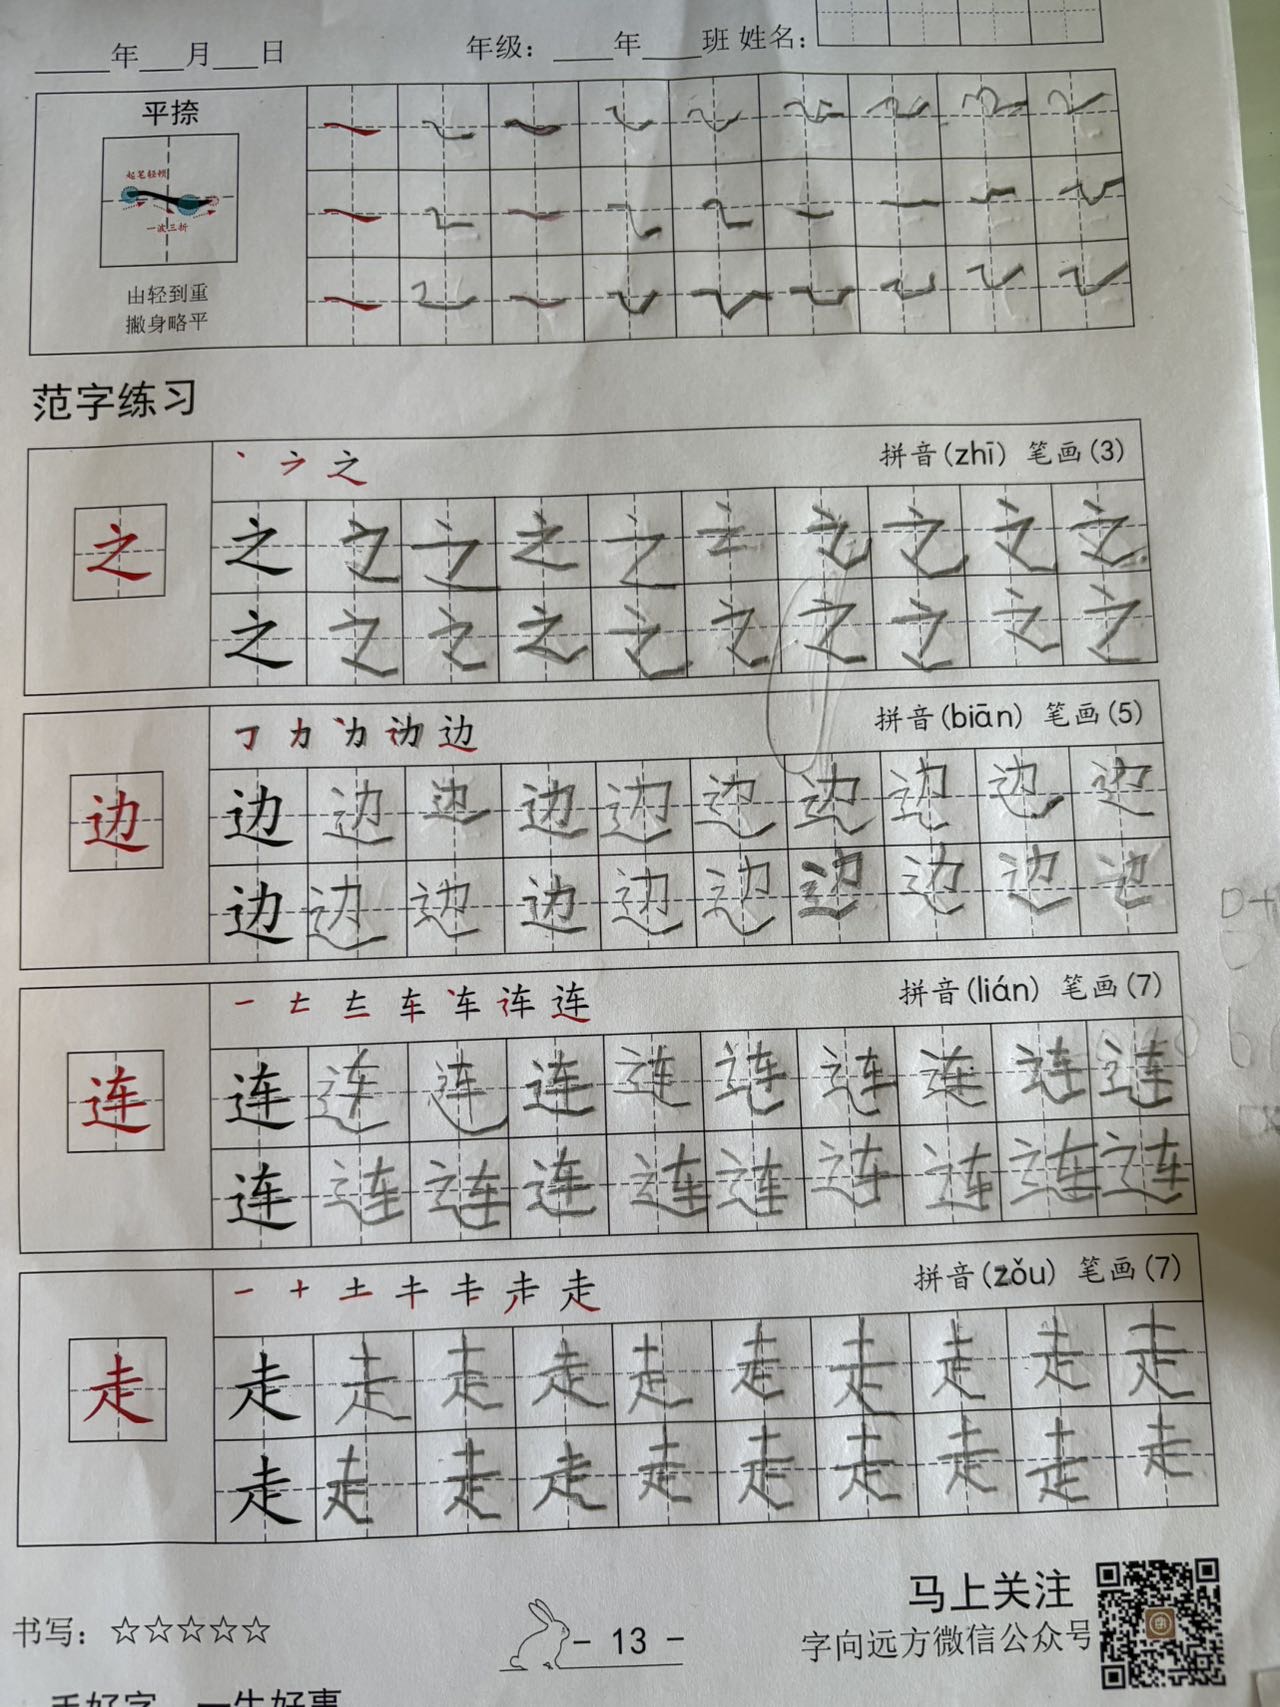 ____年___月___日 年级：____年____班 姓名：
平捺
起笔轻顿
一波三折
由轻到重
撇身略平
范字练习
丶 ㇇ 之 拼音(zhī) 笔画(3)
之 之 之 之 之 之 之 之 之 之 之
之 之 之 之 之 之 之 之 之 之
边 拼音(biān) 笔画(5)
边 边 边 边 边 边 边 边 边 边 边
边 边 边 边 边 边 边 边 边 边
一 车 连 拼音(lián) 笔画(7)
连 连 连 连 连 连 连 连 连 连 连
连 连 连 连 连 连 连 连 连 连
一 十 土 走 拼音(zǒu) 笔画(7)
走 走 走 走 走 走 走 走 走 走 走
走 走 走 走 走 走 走 走 走 走
马上关注
书写：☆☆☆☆☆ - 13 - 字向远方微信公众号
手好字 一生好事